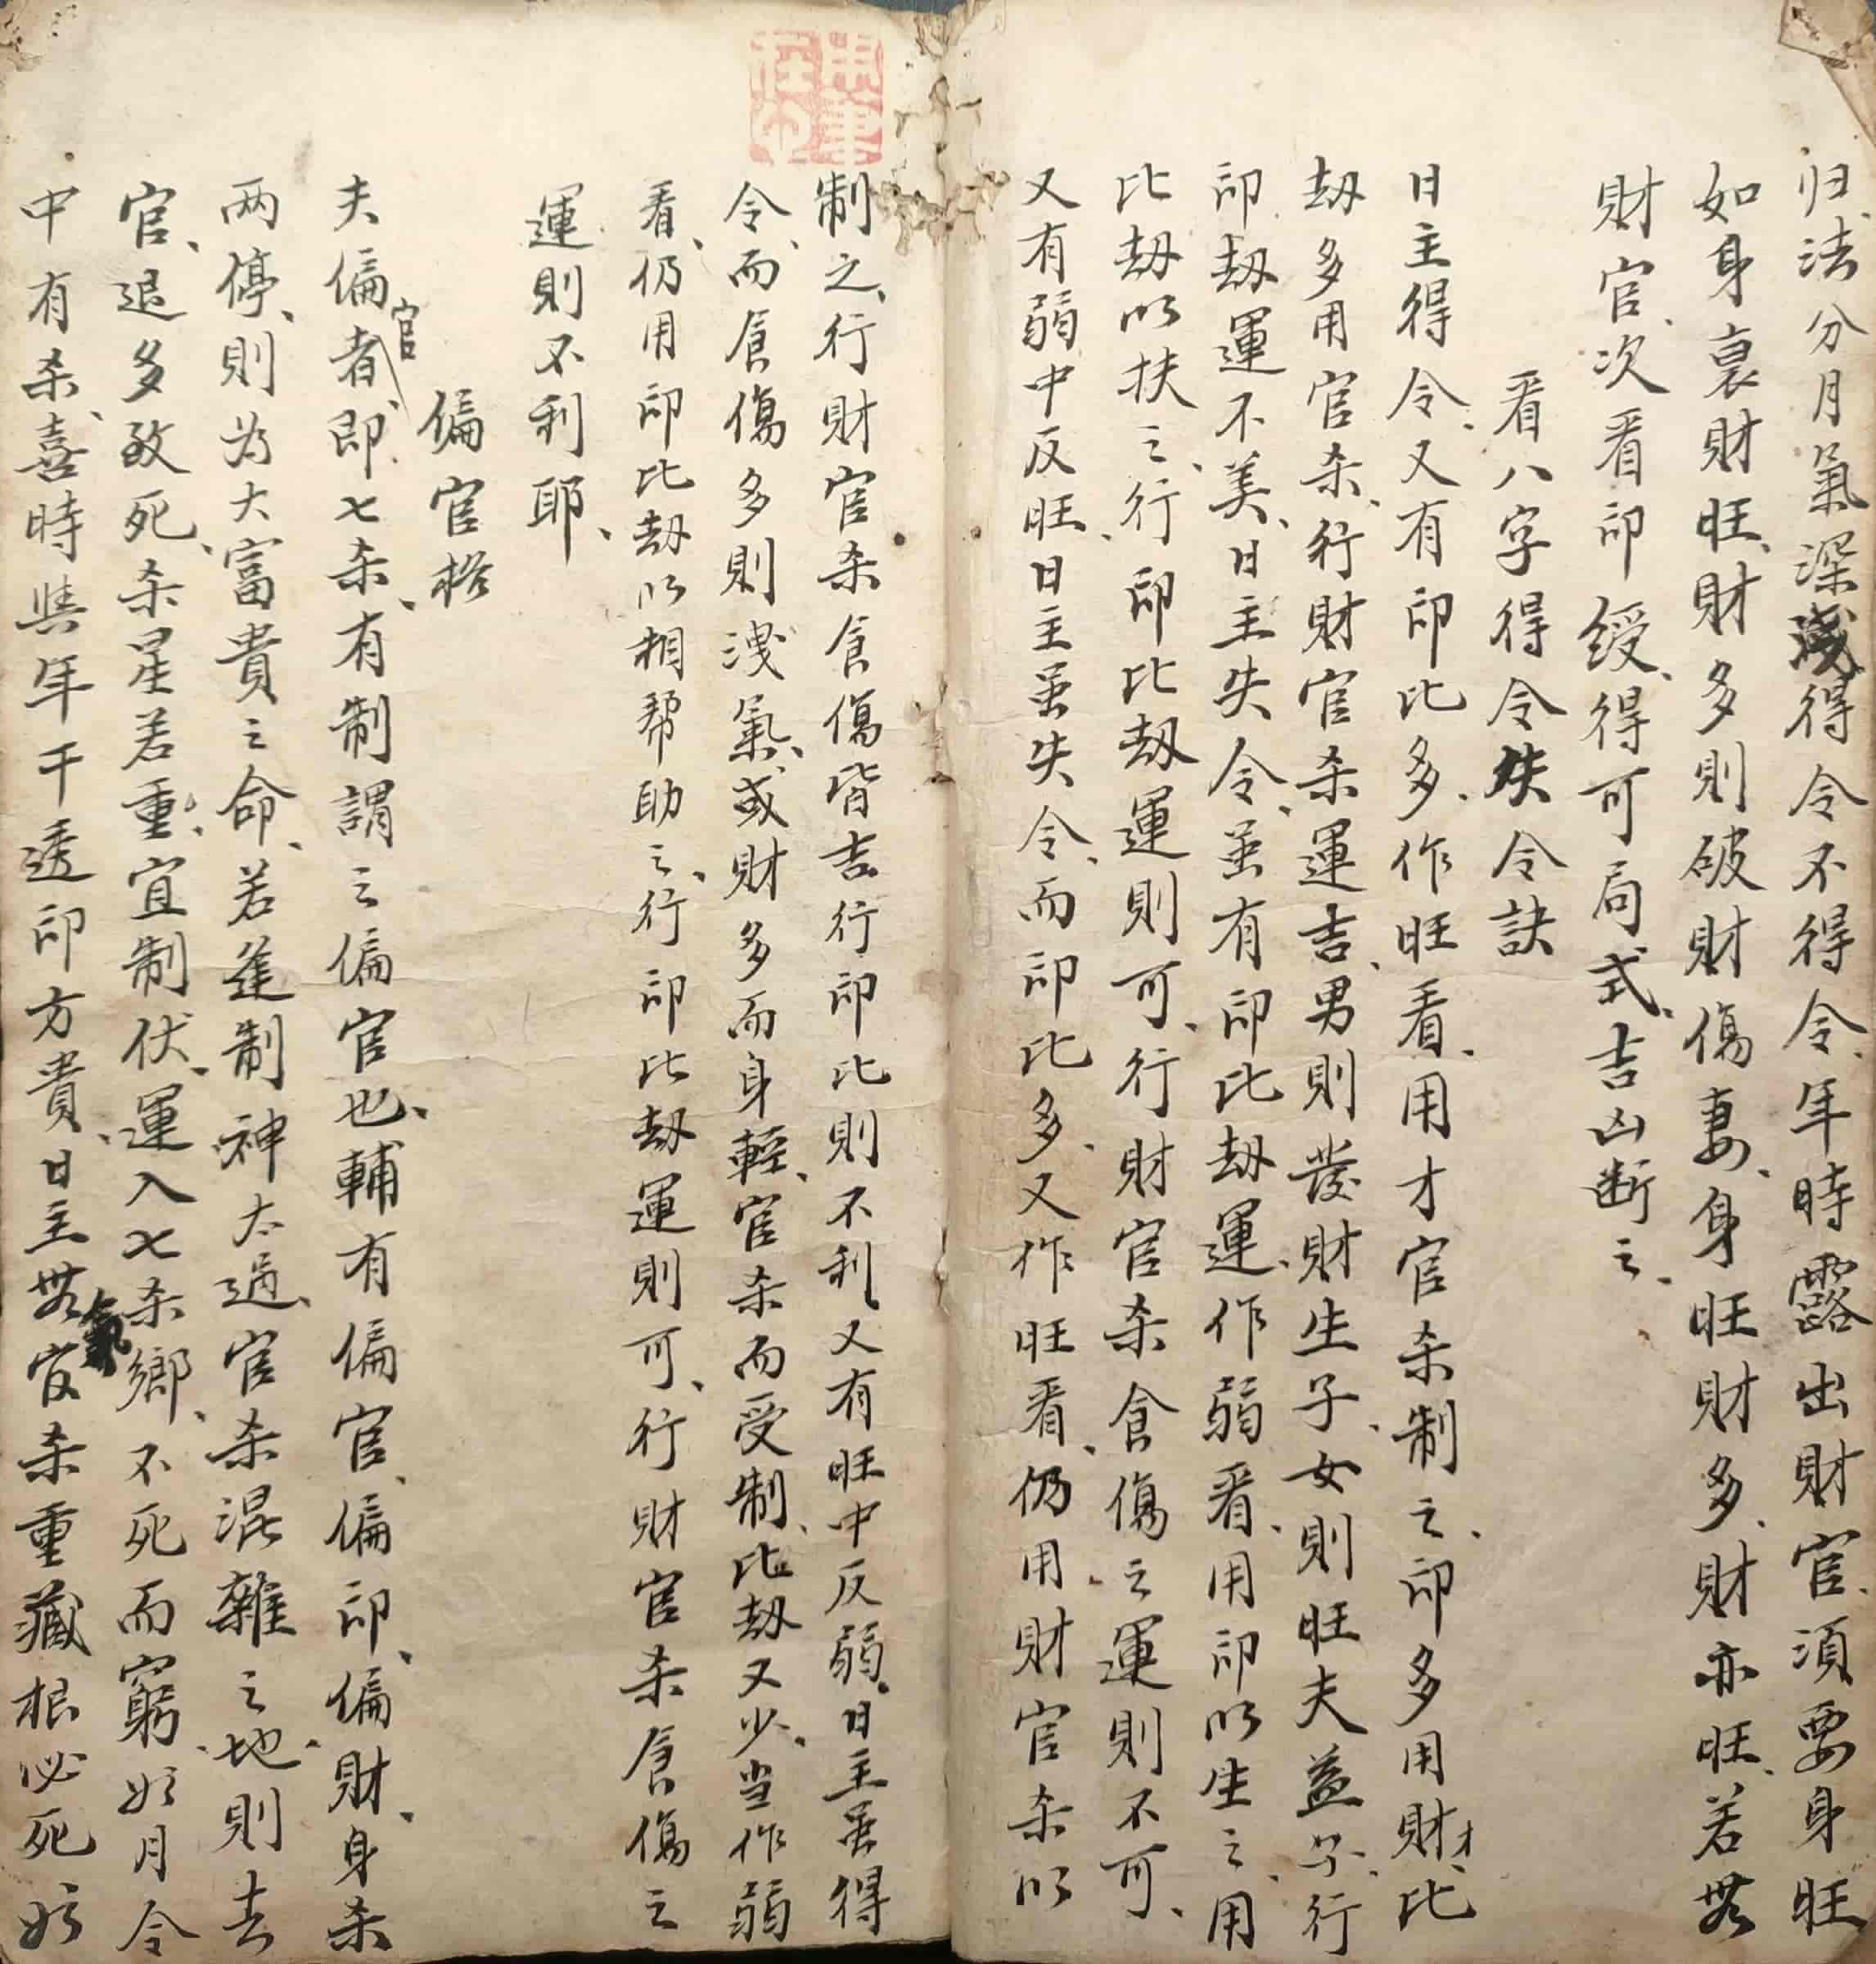 归法分月氣深淺得令不得令、年時露出財官、須要身旺
如身衰財旺、財多則破財傷妻、身旺財多、財亦旺、若無
財官、次看印綬、得可局式、吉凶断之、
看八字得令失令訣
日主得令、又有印比多、作旺看、用才官杀制之、印多用財才、比
劫多用官杀、行財官杀運吉、男則發財生子、女則旺夫益子、行
印劫運不美、日主失令、虽有印比劫運、作弱看、用印以生之、用
比劫以扶之、行印比劫運則可、行財官杀食傷之運則不可、
又有弱中反旺、日主虽失令、而印比多、又作旺看、仍用財官杀以
制之、行財官杀食傷皆吉行印比則不利、又有旺中反弱、日主虽得
令、而食傷多則洩氣、或財多而身輕、官杀而受制、比劫又少、当作弱
看、仍用印比劫以相帮助之、行印比劫運則可、行財官杀食傷之
運則不利耶、
偏官格
夫偏官者、即七杀、有制謂之偏官也、輔有偏官、偏印、偏財、身杀
两停、則为大富貴之命、若進制神太過、官杀混雜之地、則去
官、退多致死、杀星若重、宜制伏、運入七杀鄉、不死而窮、如月令
中有杀、喜時與年干透印方貴、日主無氣官杀重藏根必死於